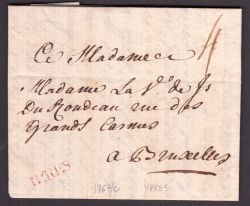 A Madame
Madame La V.e de Js
Du Rondeau rue des
Grands Carmes
a Bruxelles
YPRES
YPRES